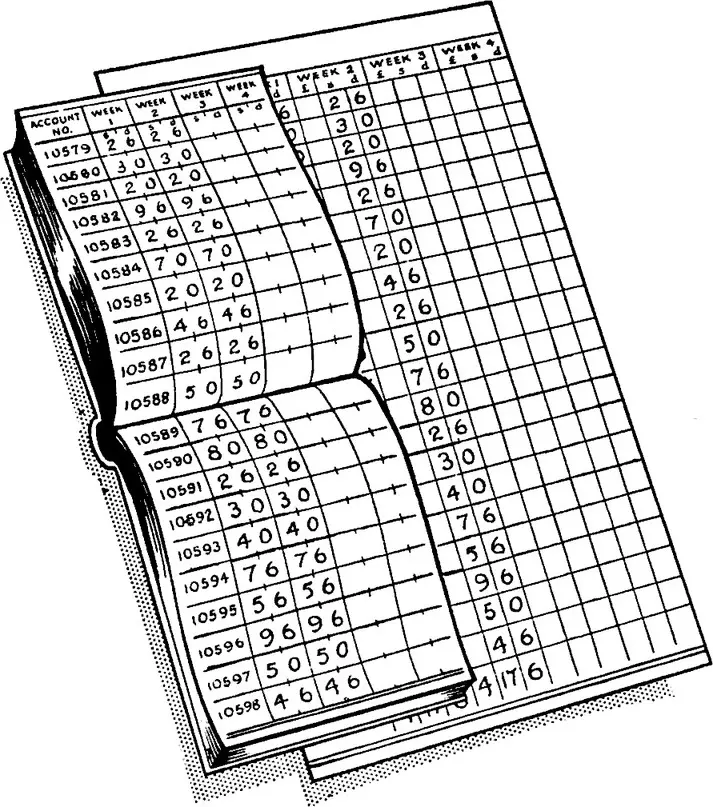 ACCOUNT NO. WEEK 1 WEEK 2 WEEK 3 WEEK 4
s d s d s d s d
10579 2 6 2 6
10580 3 0 3 0
10581 2 0 2 0
10582 9 6 9 6
10583 2 6 2 6
10584 7 0 7 0
10585 2 0 2 0
10586 4 6 4 6
10587 2 6 2 6
10588 5 0 5 0
10589 7 6 7 6
10590 8 0 8 0
10591 2 6 2 6
10592 3 0 3 0
10593 4 0 4 0
10594 7 6 7 6
10595 5 6 5 6
10596 9 6 9 6
10597 5 0 5 0
10598 4 6 4 6
1 WEEK 2 WEEK 3 WEEK 4
d £ s d £ s d £ s d
6 2 6
0 3 0
2 0
9 6
2 6
7 0
2 0
4 6
2 6
5 0
7 6
8 0
2 6
3 0
4 0
7 6
5 6
9 6
5 0
4 6
4 17 6